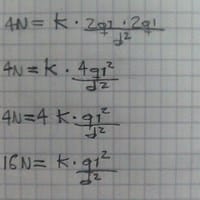 4N = K · 2q1 · 2q1 / d²
4N = K · 4q1² / d²
4N = 4 K · q1² / d²
16N = K · q1² / d²